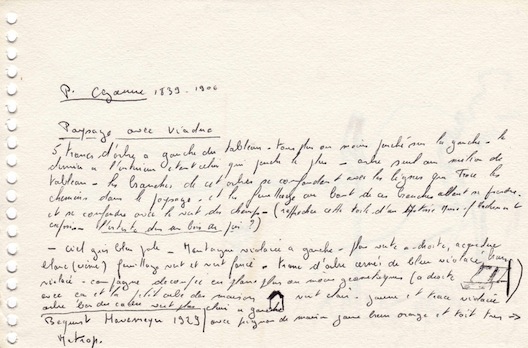 P. Cézanne 1839 - 1906
Paysage avec Viaduc
5 troncs d'arbre a gauche du tableau - tous plus ou moins penchés sur la gauche - le
chemin a l'intérieur étant celui qui penche le plus - arbre seul au milieu du
tableau - les branches de cet arbre se confondent avec les lignes que trace les
chemins dans le paysage - et le feuillage au bout de ces branches allant se fondre
et se confondre avec le vert des champs - (rapprocher cette toile d'un
- ciel gris bleu pale - Montagne violacée a gauche - plus verte a droite, aqueduc
blanc (viré) feuillage vert et vert foncé - tronc d'arbre cernés de bleu violacé, brun
violacé - campagne découpée en plans plus ou moins géométriques (a droite
avec ça et la des toits des maisons vert clair - jaune et trace violacée
arbre bas du cadre vert plus clair a gauche
Bequest Havemeyer 1929 / avec pignon de maison jaune brun orange et toit
Metrop.